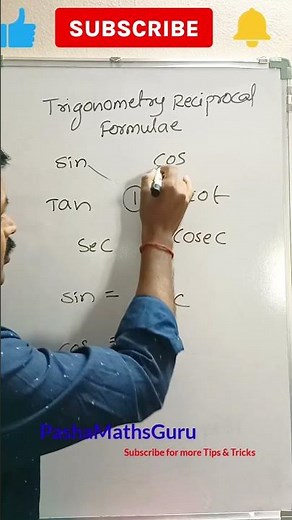 SUBSCRIBE
Trigonometry Reciprocal
Formulae
sin cos
Tan 1 cot
Sec Cosec
sin =
cos =
PashaMathsGuru
Subscribe for more Tips & Tricks